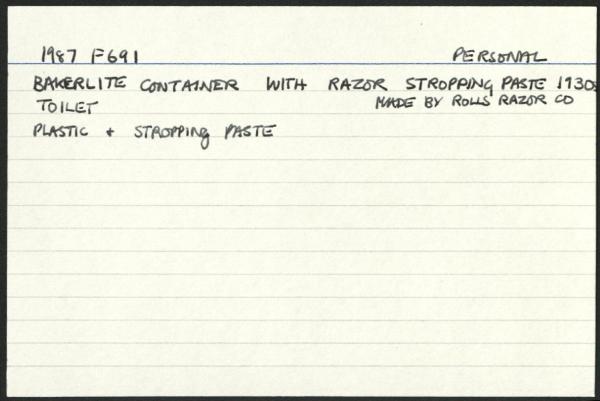 1987 F691 PERSONAL
BAKERLITE CONTAINER WITH RAZOR STROPPING PASTE 1930s
TOILET MADE BY ROLLS RAZOR CO
PLASTIC + STROPPING PASTE